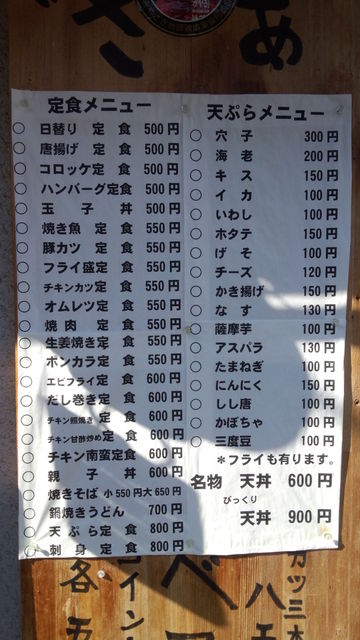 定食メニュー
○ 日替り 定 食 500円
○ 唐揚げ 定 食 500円
○ コロッケ定 食 500円
○ ハンバーグ定食 500円
○ 玉 子 丼 500円
○ 焼き魚 定 食 550円
○ 豚カツ 定 食 550円
○ フライ盛定 食 550円
○ チキンカツ定 食 550円
○ オムレツ定 食 550円
○ 焼 肉 定 食 550円
○ 生姜焼き定 食 550円
○ ポンカラ定 食 550円
○ エビフライ定 食 600円
○ だし巻き定 食 600円
○ チキン照焼き 定 食 600円
○ チキン甘酢炒め定 食 600円
○ チキン南蛮定食 600円
○ 親 子 丼 600円
○ 焼きそば 小550円大650円
○ 鍋焼きうどん 700円
○ 天ぷら定 食 800円
○ 刺 身 定 食 800円
天ぷらメニュー
○ 穴 子 300円
○ 海 老 200円
○ キ ス 150円
○ イ カ 100円
○ いわし 100円
○ ホタテ 150円
○ げ そ 100円
○ チーズ 120円
○ かき揚げ 150円
○ な す 130円
○ 薩摩芋 100円
○ アスパラ 130円
○ たまねぎ 100円
○ にんにく 150円
○ しし唐 100円
○ かぼちゃ 100円
○ 三度豆 100円
＊フライも有ります。
名物 天丼 600円
びっくり
天丼 900円